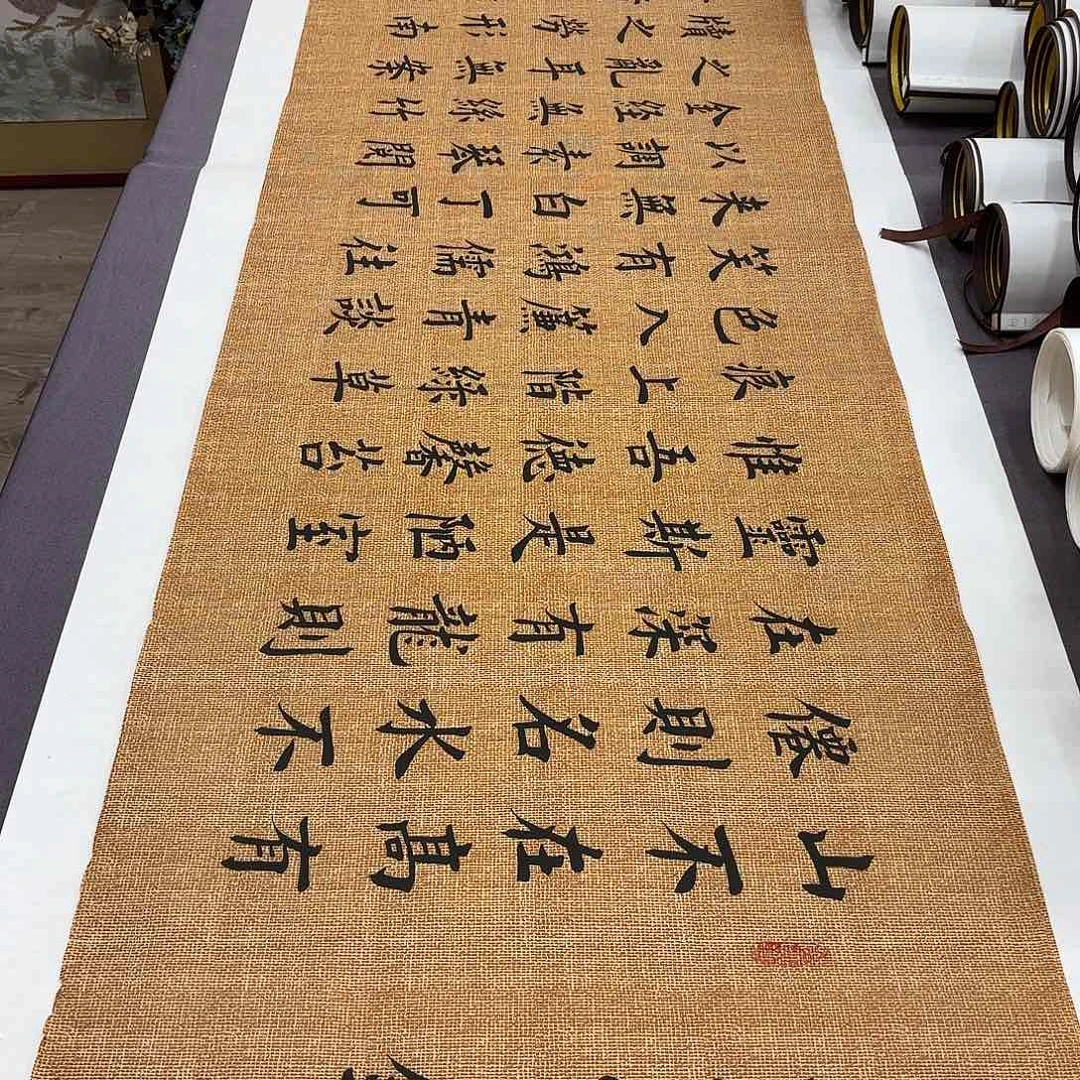 山不在髙有
僊則名水不
在深有龍則
靈斯是陋室
惟吾德馨苔
痕上階綠草
色入簾青談
笑有鴻儒往
来無白丁可
以調素琴閱
金經無絲竹
之亂耳無案
牘之勞形南